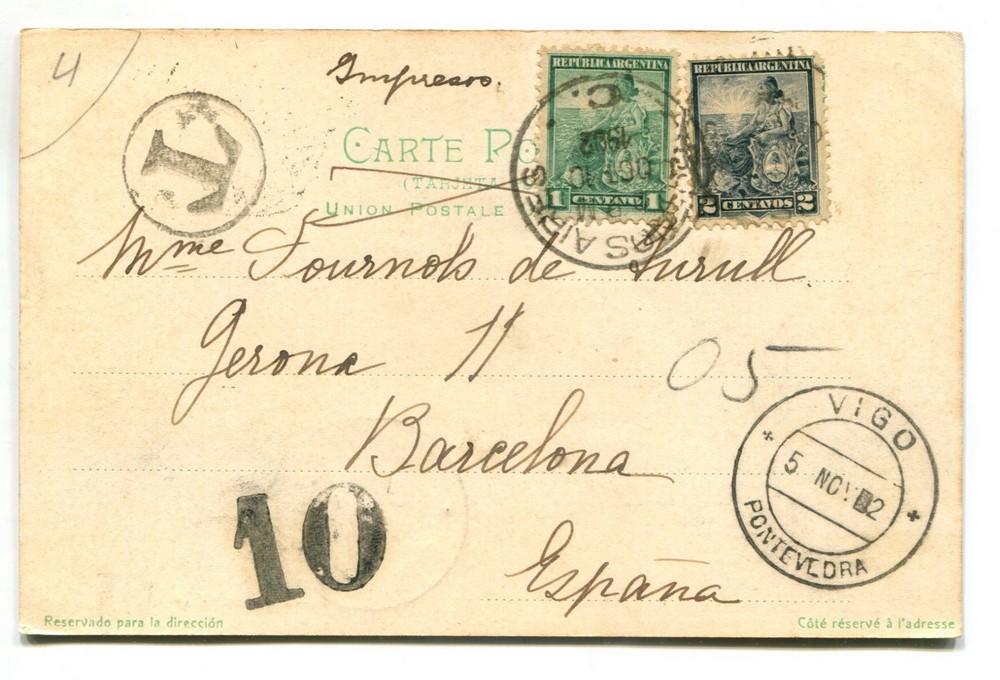 4
Impresos.
T
REPÚBLICA ARGENTINA
1 CENTAVO 1
REPÚBLICA ARGENTINA
2 CENTAVOS 2
CARTE PO
(TARJETA
UNION POSTALE
C.
1902
OCT 10
BUENOS AIRES
Mme Fournols de Turull
Gerona 11
05
Barcelona
VIGO
5 NOV 02
PONTEVEDRA
10
España
Reservado para la dirección
Côté réservé à l'adresse